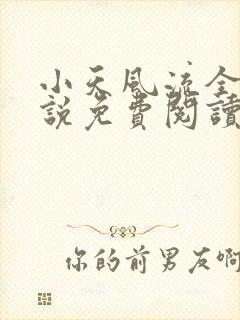 小天風流全
說免費閱讀
你的前男友啊